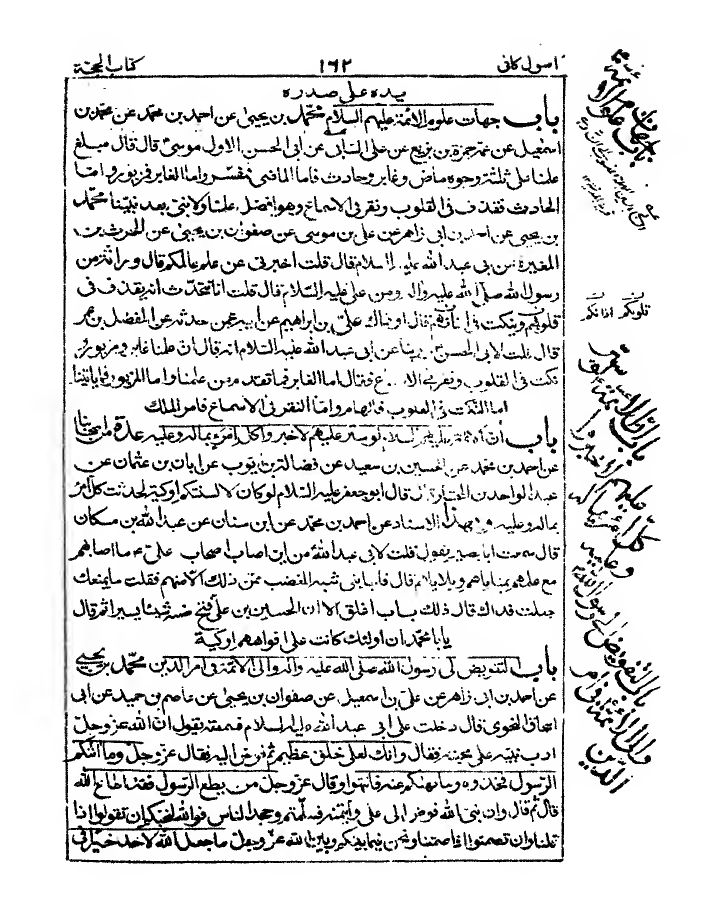 اصول كافى ١٦٢ كتاب الحجة
يده على صدره
باب جهات علوم الائمة عليهم السلام محمد بن يحيى عن احمد بن محمد عن محمد بن
اسمعيل عن عمه حمزة بن بزيع عن على السائى عن ابى الحسن الاول موسى قال قال مبلغ
علمنا على ثلثة وجوه ماض وغابر وحادث فاما الماضى فمفسر واما الغابر فمزبور واما
الحادث فقذف فى القلوب ونقر فى الاسماع وهو افضل علمنا ولا نبى بعد نبينا محمد
بن يحيى عن احمد بن ابى زاهر عن على بن موسى عن صفوان بن يحيى عن الحرث بن
المغيرة عن ابى عبد الله عليه السلام قال قلت اخبرنى عن علم عالمكم قال وراثة من
رسول الله صلى الله عليه واله ومن على عليه السلام قال قلت انا نتحدث انه يقذف فى
قلوبكم وينكت فى اذانكم قال او ذاك على بن ابراهيم عن ابيه عمن حدثه عن المفضل بن عمر
قال قلت لابى الحسن روينا عن ابى عبد الله عليه السلام انه قال ان علمنا غابر ومزبور و
نكت فى القلوب ونقر فى الاسماع فقال اما الغابر فما تقدم من علمنا واما المزبور فما ياتينا
اما النكت فى القلوب فالهام واما النقر فى الاسماع فامر الملك
باب ان الائمة عليهم السلام لو ستر عليهم لاخبروا كل امرئ بماله وعليه عدة من اصحابنا
عن احمد بن محمد عن الحسين بن سعيد عن فضالة بن ايوب عن ابان بن عثمان عن
عبد الواحد بن المختار قال قال ابو جعفر عليه السلام لو كان لالسنتكم اوكية لحدثت كل امرئ
بماله وعليه وبهذا الاسناد عن احمد بن محمد عن ابن سنان عن عبد الله بن مسكان
قال سمعت ابا بصير يقول قلت لابى عبد الله من اين اصاب اصحاب على ع ما اصابهم
مع علمهم بمناياهم وبلاياهم قال فاجابنى شبه المغضب ممن ذلك الا منهم فقلت ما يمنعك
جعلت فداك قال ذلك باب اغلق الا ان الحسين بن على فتح منه شيئا يسيرا ثم قال
يا با محمد ان اولئك كانت على افواههم اوكية
باب التفويض الى رسول الله صلى الله عليه واله والى الائمة فى امر الدين محمد بن يحيى
عن احمد بن ابى زاهر عن على بن اسمعيل عن صفوان بن يحيى عن عاصم بن حميد عن ابى
اسحاق النحوى قال دخلت على ابى عبد الله عليه السلام فسمعته يقول ان الله عز وجل
ادب نبيه على محبته فقال وانك لعلى خلق عظيم ثم فوض اليه فقال عز وجل وما اتيكم
الرسول فخذوه وما نهيكم عنه فانتهوا وقال عز وجل من يطع الرسول فقد اطاع الله
قال ثم قال وان نبى الله فوض الى على وائتمنه فسلمتم وجحد الناس فوالله لنحبكم ان تقولوا اذا
قلنا وان تصمتوا اذا صمتنا ونحن فيما بينكم وبين الله عز وجل ما جعل الله لاحد خيرا فى
باب جهات علوم الائمة
قلوبكم اذانكم
باب ان الائمة لو ستر
عليهم لاخبروا
كل امرئ بماله
وعليه
باب التفويض الى رسول الله
والى الائمة فى امر
الدين